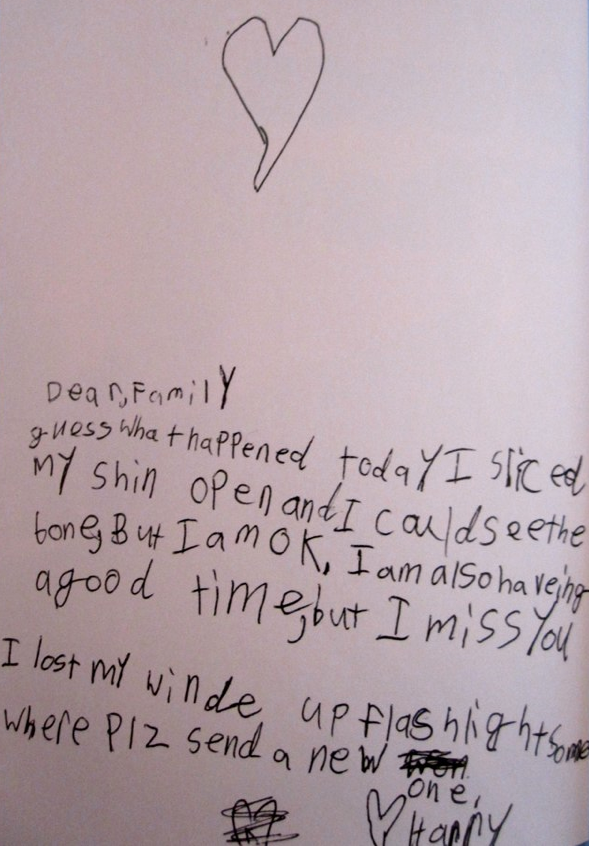 Dear, Family
guess what happened today I sliced
my shin open and I could see the
bone, But I am OK, I am also haveing
a good time, but I miss You
I lost my winde up flashlight some
where Plz send a new
one,
Harry